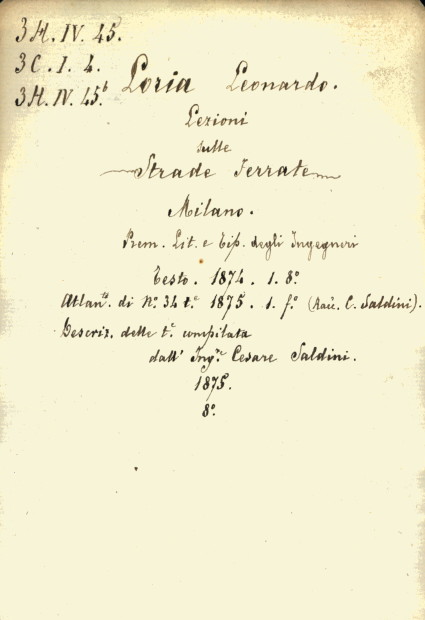 3H. IV. 45.
3C. I. 4.
3H. IV. 45.b
Loria Leonardo.
Lezioni
sulle
Strade Ferrate
Milano.
Prem. Lit. e Tip. degli Ingegneri
Testo. 1874. 1. 8°.
di N.° 34 t.e 1875. 1. f.° (Racc. C. Saldini).
Descriz. delle t.e compilata
dall' Ing.re Cesare Saldini.
1875.
8°.